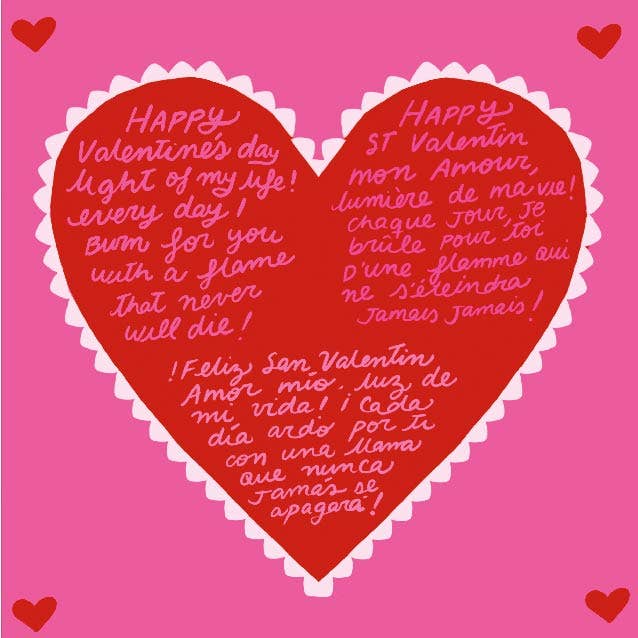 HAPPY
Valentine's day
light of my life!
every day I
Burn for you
with a flame
that never
will die!
HAPPY
ST Valentin
mon Amour,
lumière de ma vue!
chaque Jour, Je
brûle pour toi
D'une flamme qui
ne s'éteindra
Jamais Jamais!
!Feliz San Valentin
Amor mío, luz de
mi vida! ¡Cada
día ardo por ti
con una llama
que nunca
Jamás se
apagará!